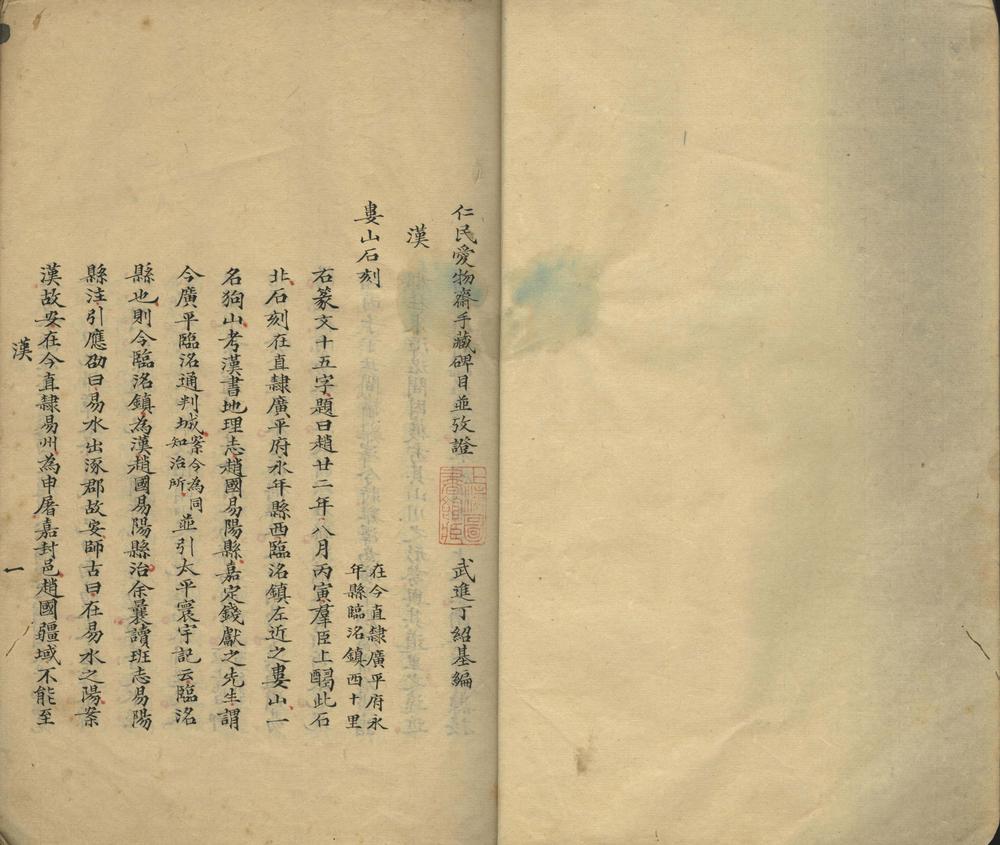 仁民愛物齋手藏碑目並攷證 武進丁紹基編
漢
婁山石刻 在今直隸廣平府永年縣臨洺鎮西十里
石篆文十五字題曰趙廿二年八月丙寅羣臣上醻此石
北石刻在直隸廣平府永年縣西臨洺鎮左近之婁山一
名狗山考漢書地理志趙國易陽縣嘉定錢獻之先生謂
今廣平臨洺通判城案今為同知治所並引太平寰宇記云臨洺
縣也則今臨洺鎮為漢趙國易陽縣治余曩讀班志易陽
縣注引應劭曰易水出涿郡故安師古曰在易水之陽案
漢故安在今直隸易州為申屠嘉封邑趙國疆域不能至
漢 一